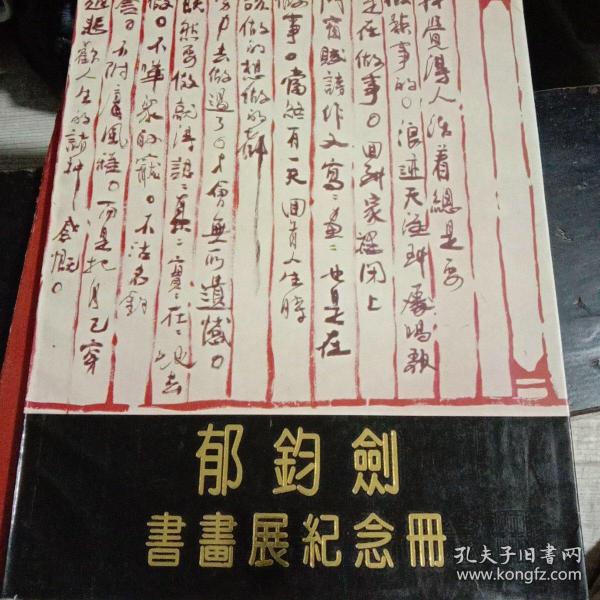 覺得人活着總是要
做點事的。浪迹天涯到處唱歌
是在做事。回到家裡閉上
門窗賦詩作文寫〻畫〻也是在
做事。當然有一天回首人生時
該做的想做的都
去做過了。才會無所遺憾。
既然要做就得認〻真〻實〻在〻地去
做。不嘩眾取寵。不沽名釣
譽。不附庸風雅。而是把自己穿
悲歡人生的
感慨。
郁鈞劍
書畫展紀念冊
孔夫子旧书网
www.kongfz.com